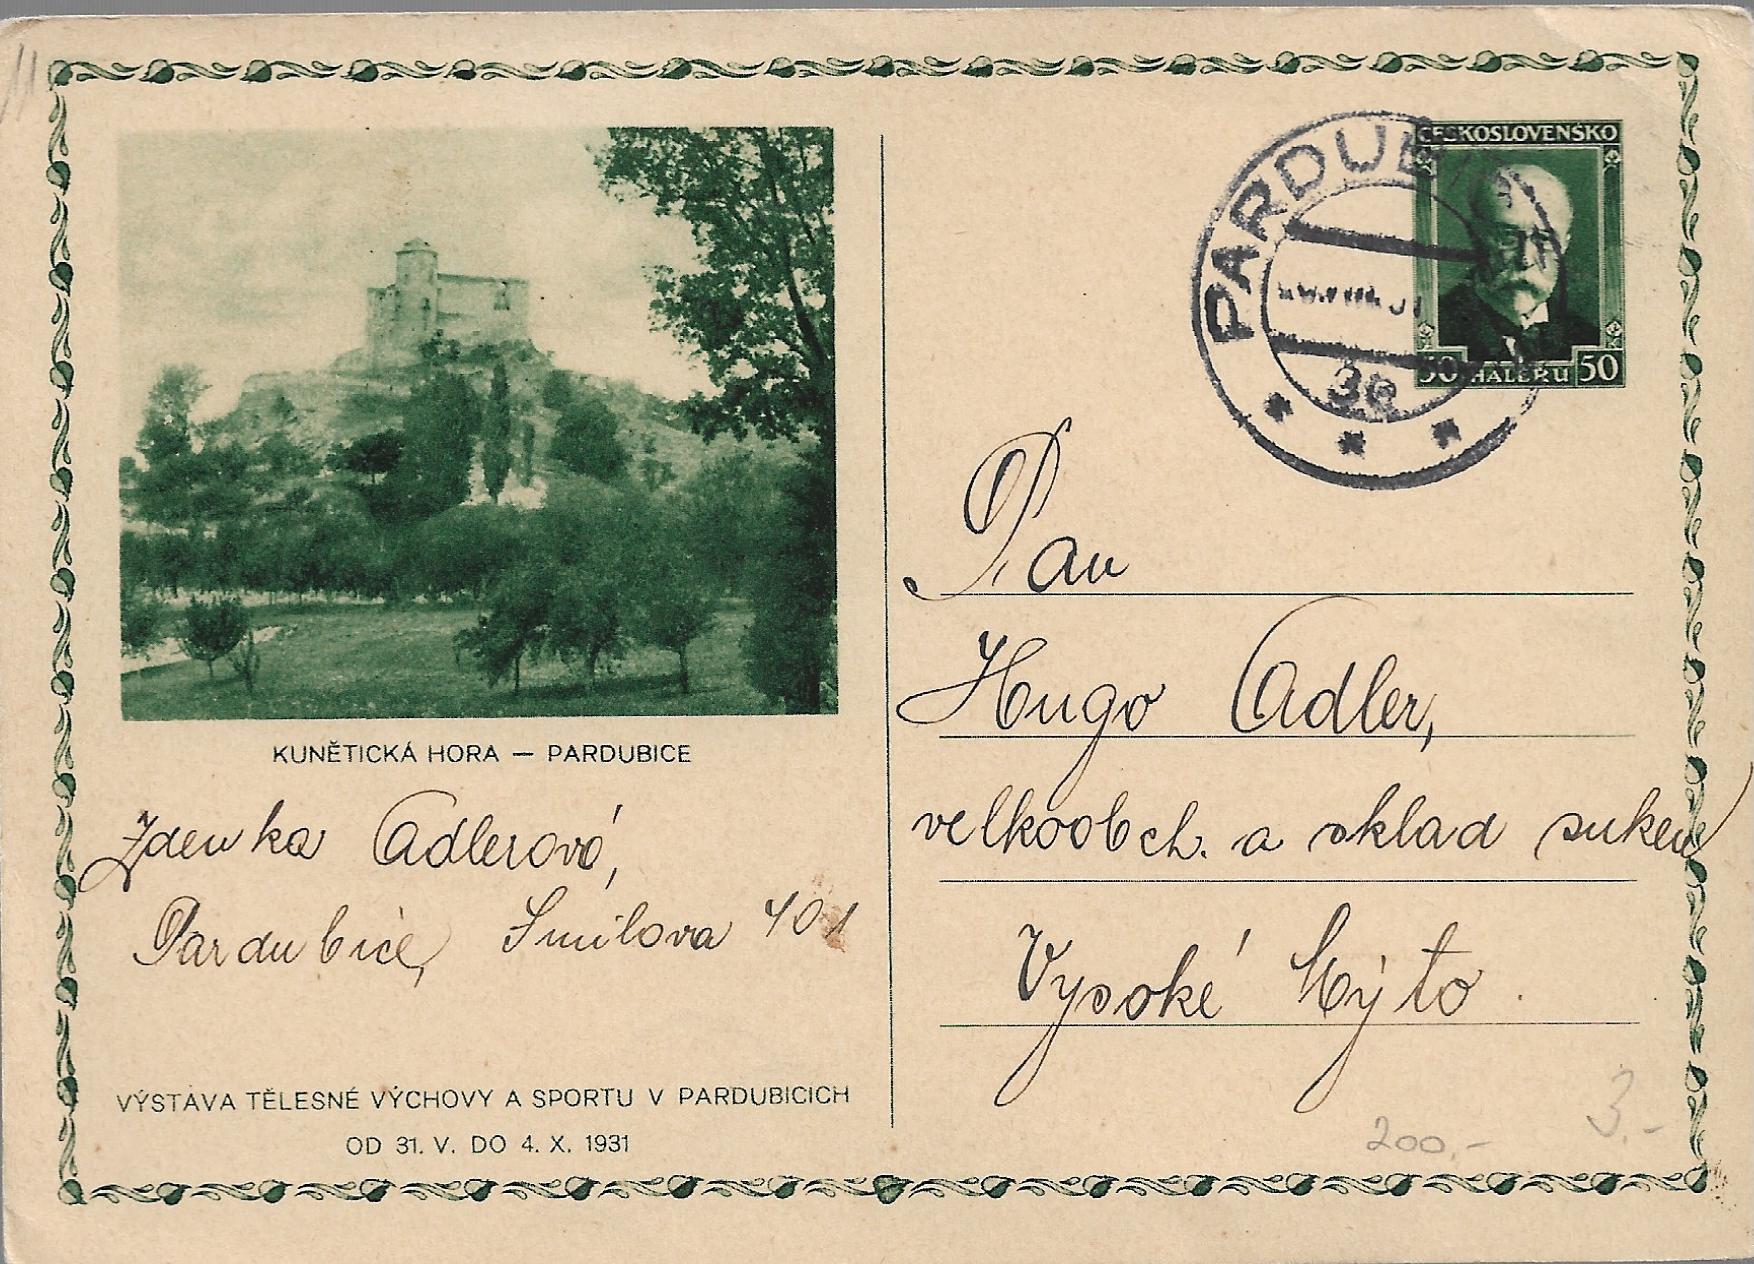 ČESKOSLOVENSKO
50 HALÉŘŮ 50
PARDUBIC
3e
KUNĚTICKÁ HORA — PARDUBICE
Zdenka Adlerová,
Pardubice, Smilova 401
VÝSTAVA TĚLESNÉ VÝCHOVY A SPORTU V PARDUBICICH
OD 31. V. DO 4. X. 1931
Pan
Hugo Adler,
velkoobch. a sklad suken
Vysoké Mýto.
200,-
3.-